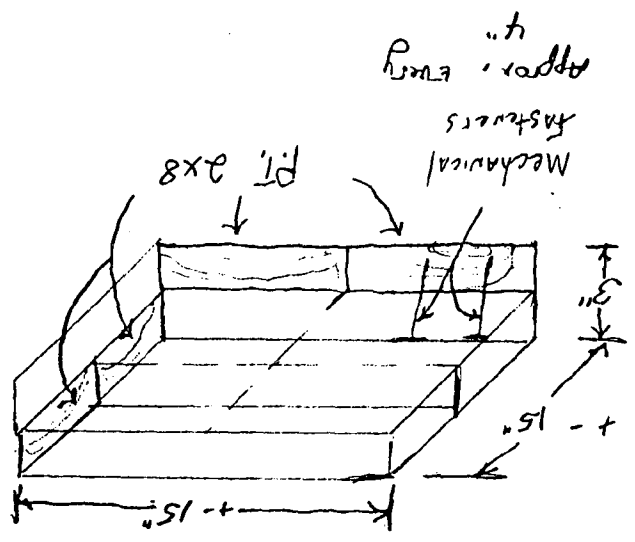 +- 15"
+- 15"
3"
P.T. 2x8
Mechanical
fasteners
Approx. Every
4"